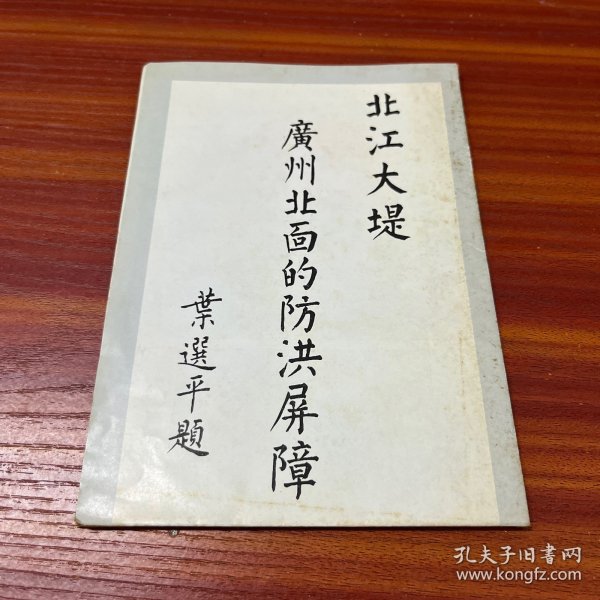 北江大堤
廣州北面的防洪屏障
葉選平題
孔夫子旧书网
www.kongfz.com